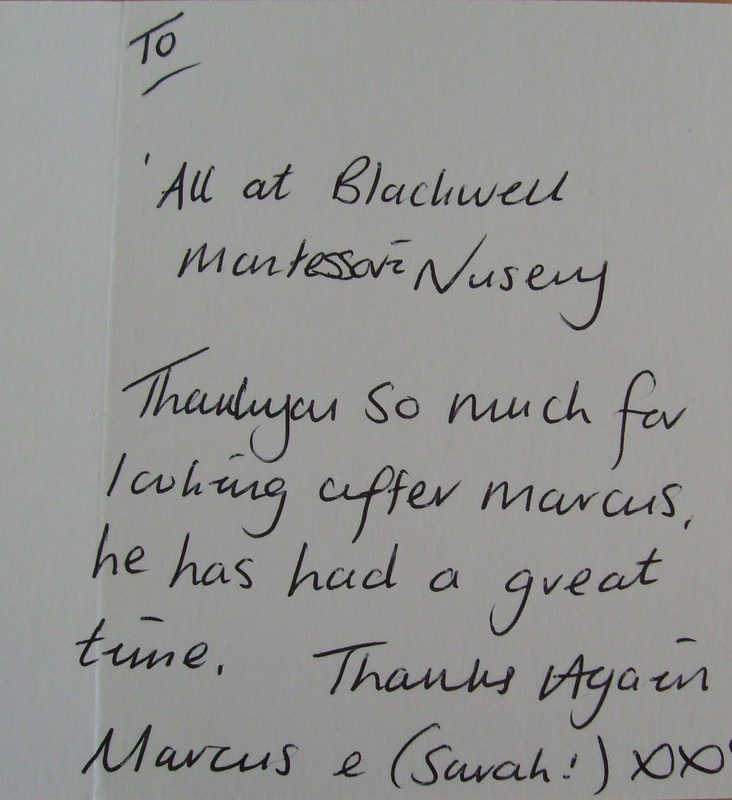 To
'All at Blackwell
Montessori Nusery
Thankyou so much for
looking after marcus,
he has had a great
time. Thanks Again
Marcus e (Sarah!) XX